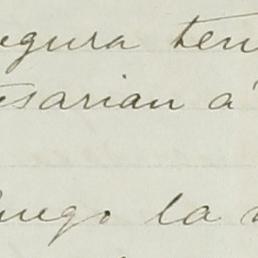 egura ten
esarian á
luego la